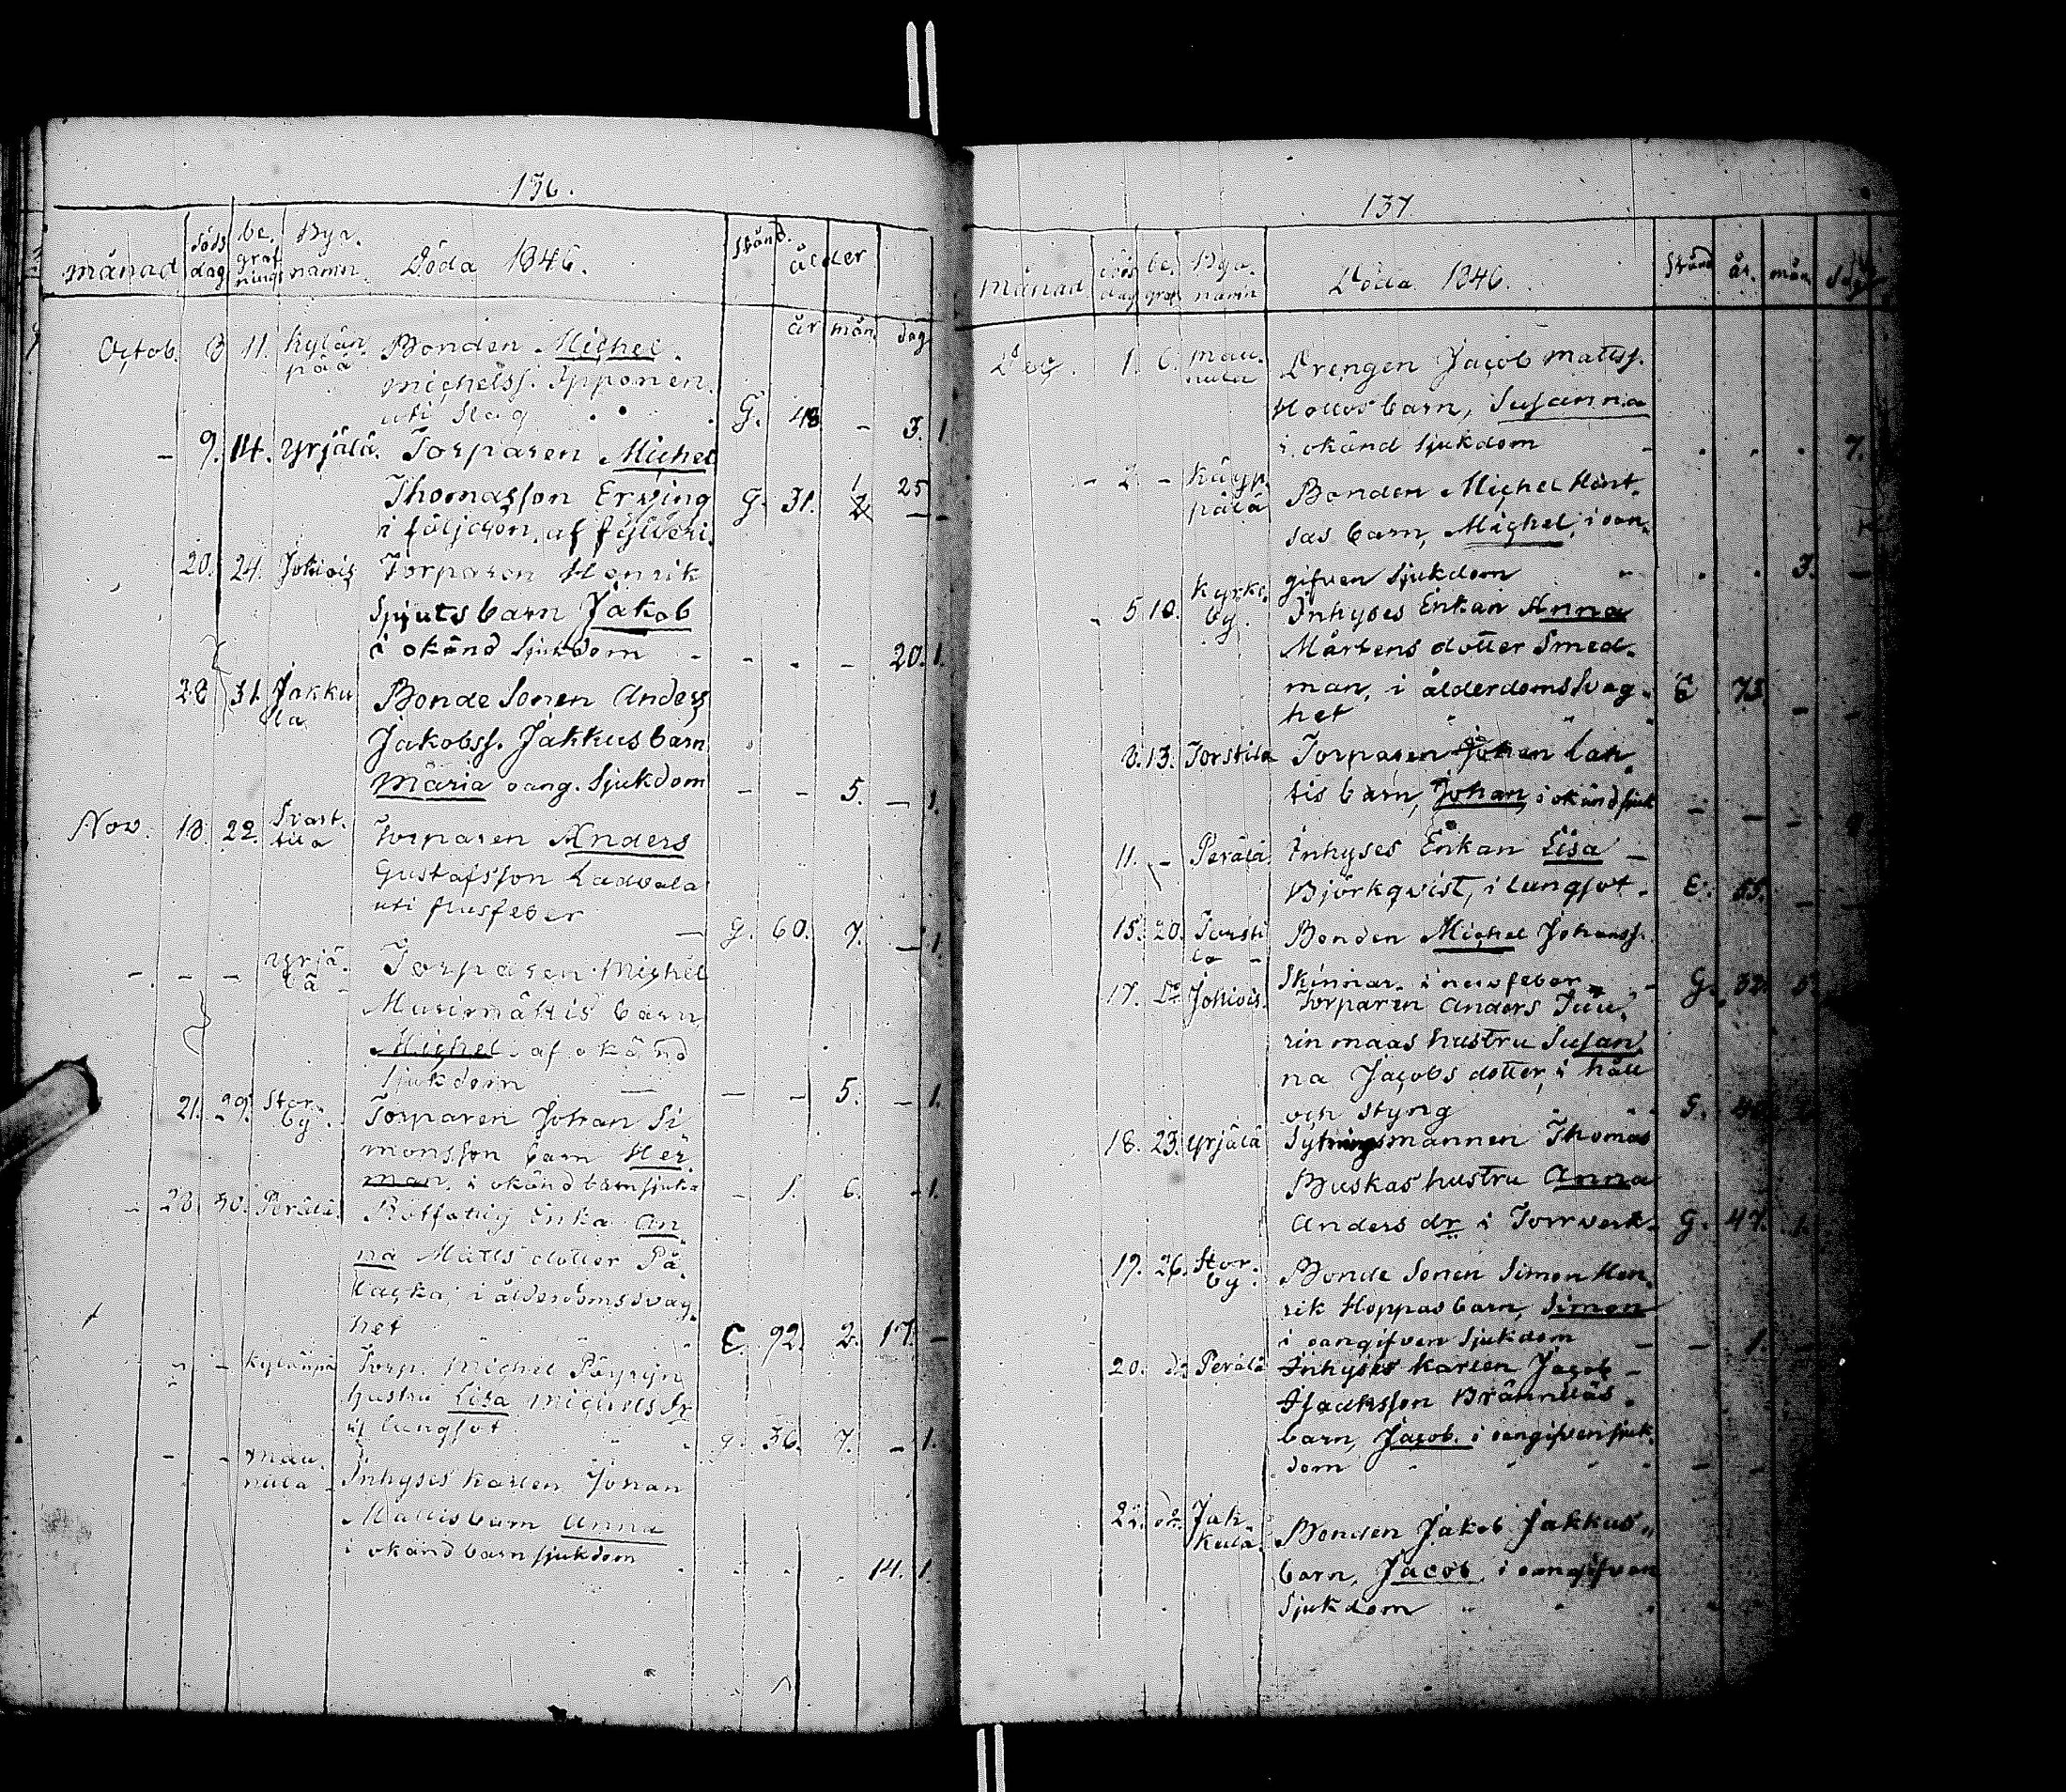 136.
månad döds dag be. graf nings Bya. namn Döda 1846. stånd. ålder
år mån. dag
Octob. 8 11. Kylän Bonden Michel
pää michelss. Ipponen
uti slag G. 48 - 3. 1.
- 9. 14. Yrjälä. Torparen Michel
Thomasson Erving G. 31. 1 25
i följeson. af fylleri.
20. 24. Jokiois Torparen Henrik
Spjuts barn Jakob
i okänd Sjukdom - - - - 20. 1.
28 31. Jakku Bonde Sonen Anders
la Jakobss. Jakkus barn
Maria oang. Sjukdom - - 5. - 1.
Nov. 18. 22. Svart. Torparen Anders
tila Gustafsson Ladvala
uti flusfeber - G. 60. 7. - 1.
- - - Yrjä. Torparen Michel
lä - Musirmättis barn
Michel af okänd
Sjukdom - - - 5. - 1.
21. 29. Stor. Torparen Johan Si
by. monsson barn Her
man, i okänd barnsjuka - 1. 6. - 1.
- 28. 30. Perälä. Rotfattig Enka An
na Matts dotter På
lacka, i ålderdomssvag
het E. 92. 2. 17. -
- - Kylänpä Torp. Michel Pärpyn
hustru Lisa Michelsdr
af lungsot G. 36. 7. - 1.
- - Mau. Inhyses karlen Johan
nula - Mattis barn Anna
i okänd barnsjukdom - - - 14. 1.
137
månad döds dag be. graf Bya. namn Döda 1846. Stånd år. mån dag
Dec. 1. 6. Mau. Drengen Jacob Mattss.
nula Hollos barn, Susanna
i okänd Sjukdom - . . . 7.
- 2. - Käyp. Bonden Michel Hint.
pälä sas barn, Michel, i oan.
gifven Sjukdom . . 3. -
- 5 10. Kyrko. Inhyses Enkan Anna
by. Mårtens dotter Smed.
man, i ålderdomsSvag. E 73.
het - -
8. 13. Torstila Torparen Johan Lah
tis barn, Johan, i okänd sjuk - - -
11. - Perälä. Inhyses Enkan Lisa -
Björkqvist, i lungsot. E. 65. -
15. 20. Torsti Bonden Michel Johanss.
la - Skinnar. i nervfeber - G. 32. 5.
17. Do Jokiois. Torparen Anders Juu
rinmaas hustru Susan
na Jacobs dotter, i håll
och styng G. 40
18. 23. Yrjälä Sytningsmannen Thomas
Buskas hustru Anna
Anders dr i Torrverk. G. 47. 1.
19. 26. Stor. Bonde Sonen Simon Hen.
by. rik Hoppas barn, Simon
i oangifven Sjukdom - - 1.
20. do Perälä Inhyses karlen Jacob -
Isacksson Bränniläs
barn, Jacob. i oangifven sjuk.
dom - -
22. do. Jak Bonden Jakob Jakkus
kula barn, Jacob, i oangifven
Sjukdom